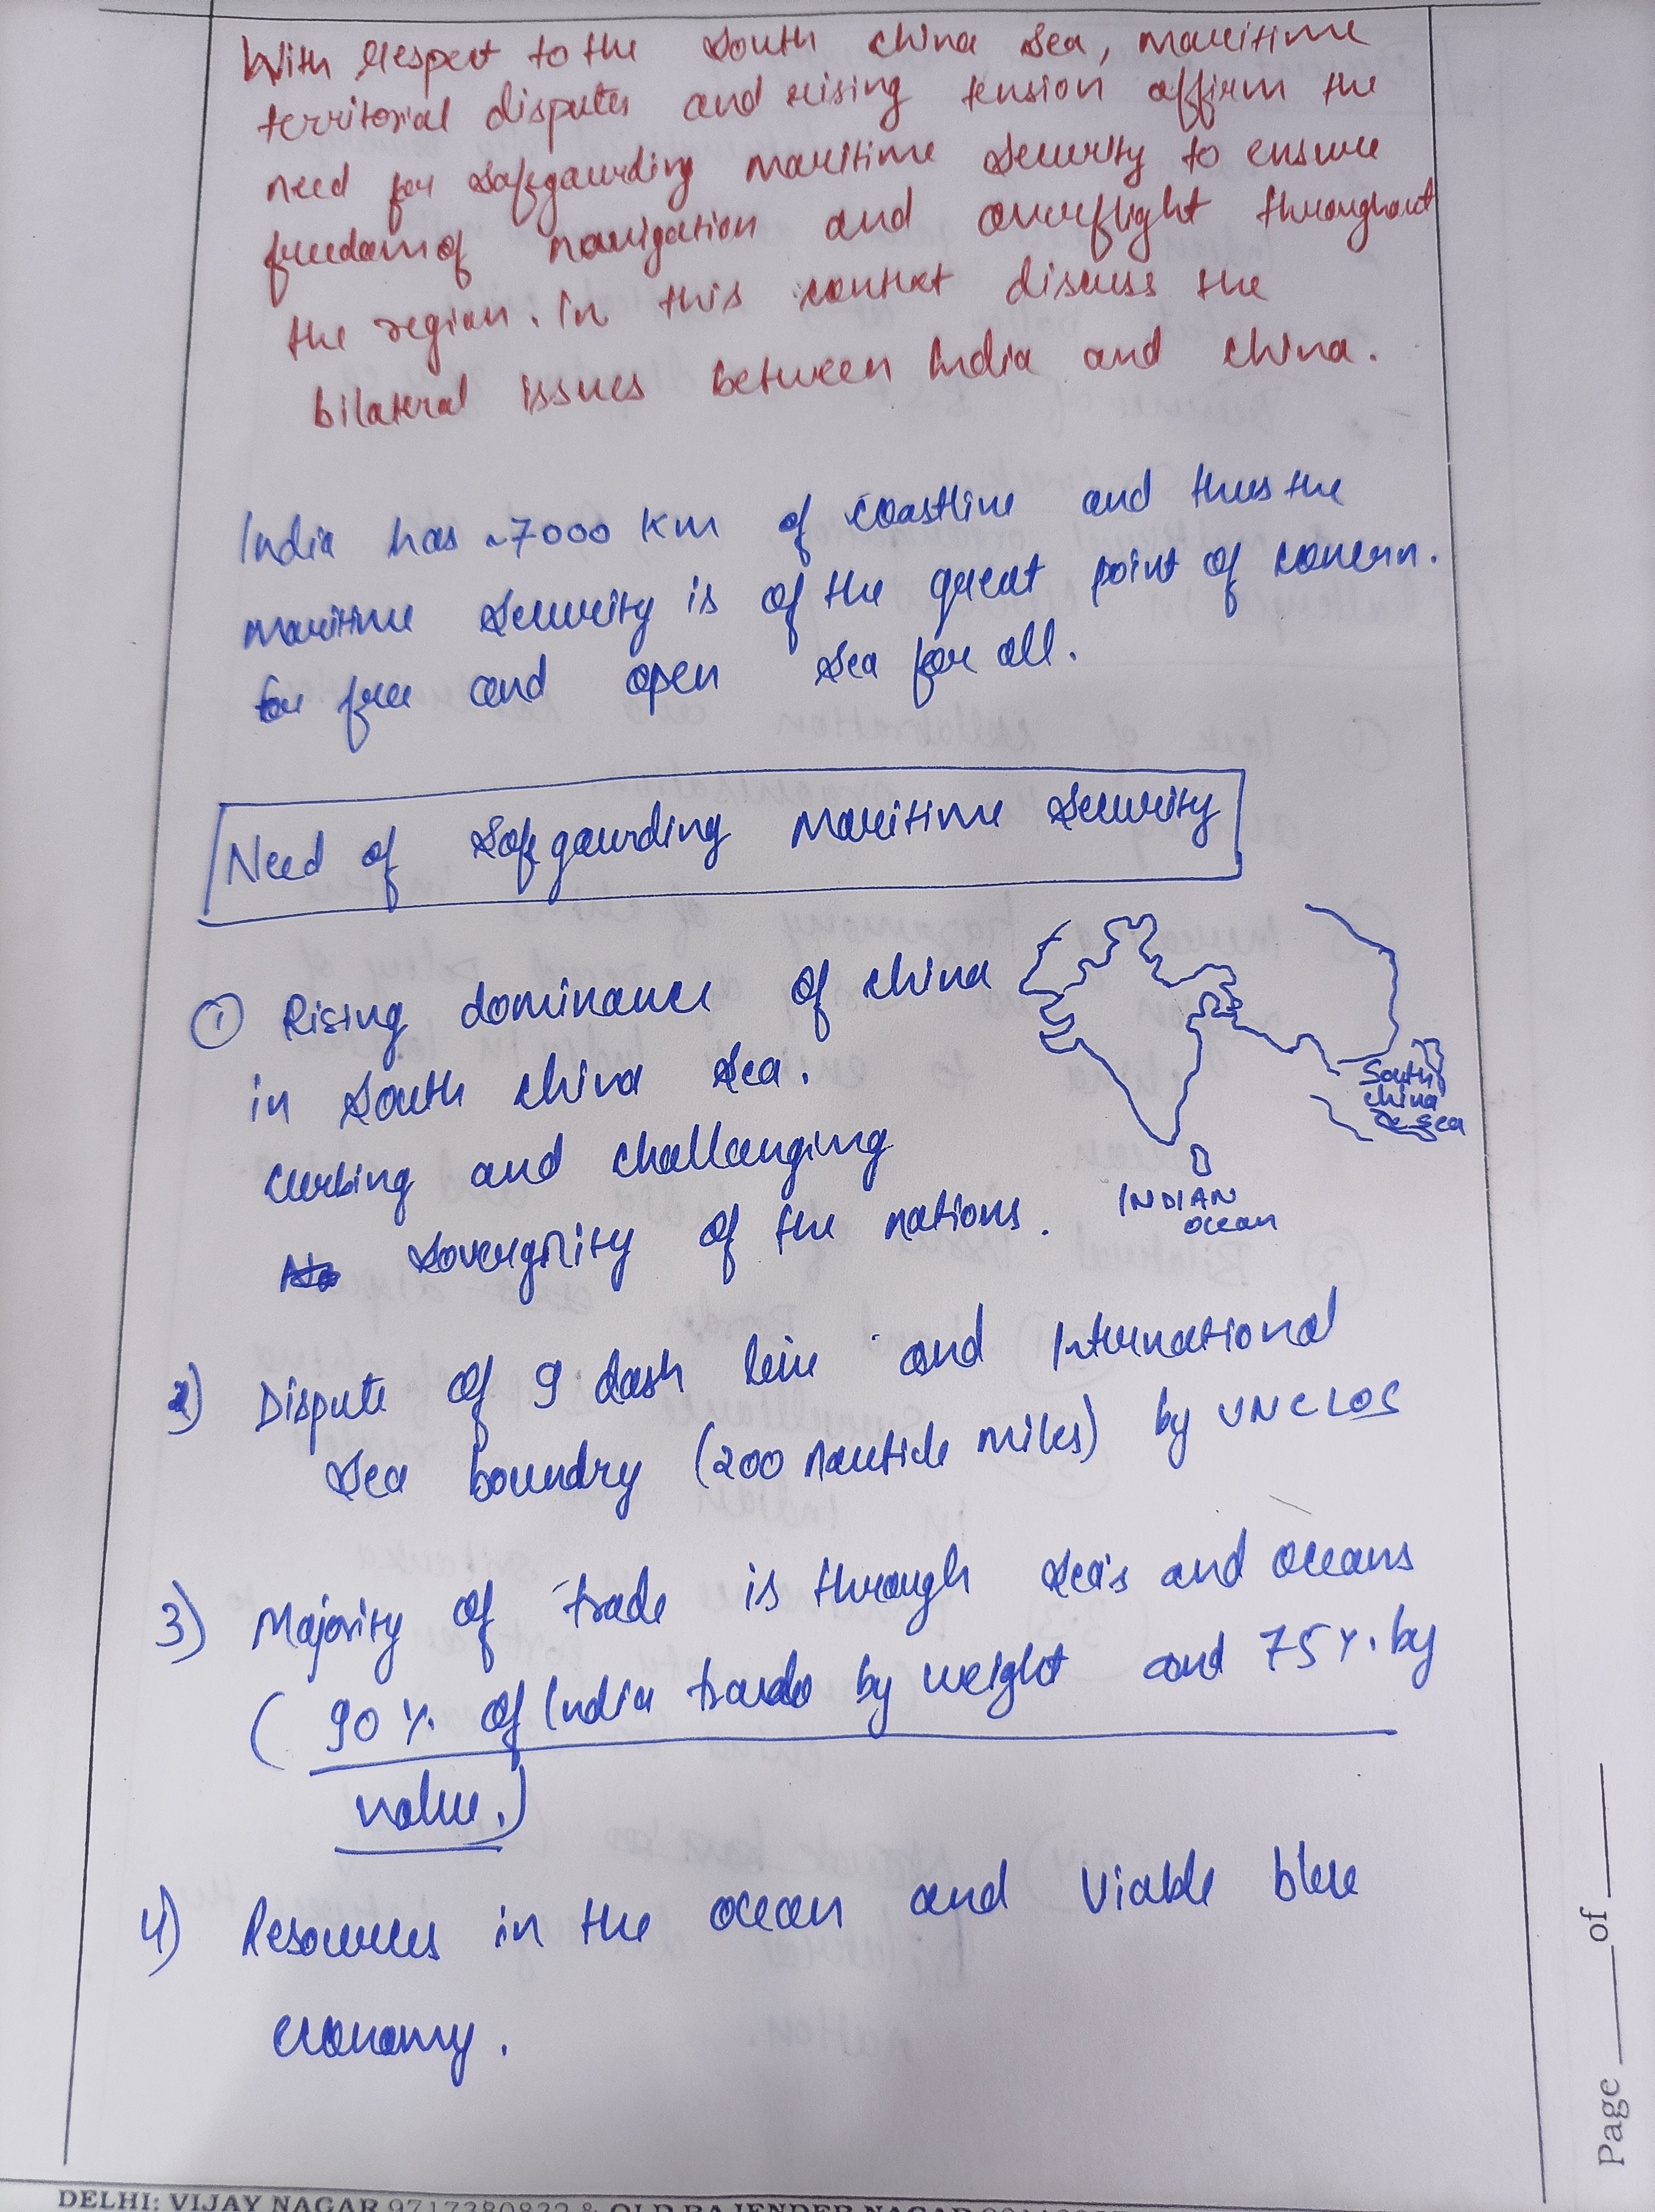 With respect to the South China Sea, maritime
territorial disputes and rising tension affirm the
need for safegaurding maritime security to ensure
freedom of navigation and overflight throughout
the region. In this context discuss the
bilateral issues between India and China.
India has ~7000 Km of coastline and thus the
maritime security is of the great point of concern.
for free and open sea for all.
Need of Safegaurding Maritime Security
① Rising dominance of China
in South China Sea.
curbing and challanging
sovergnity of the nations.
South
China
Sea
INDIAN
Ocean
2) Dispute of 9 dash line and International
Sea boundry (200 nauticle miles) by UNCLOS
3) Majority of trade is through sea's and oceans
( 90 % of India trade by weight and 75 %. by
value.)
4) Resources in the ocean and Viable blue
economy.
Page ____ of ____
DELHI: VIJAY NAGAR 9717380832 & OLD RAJENDER NAGAR